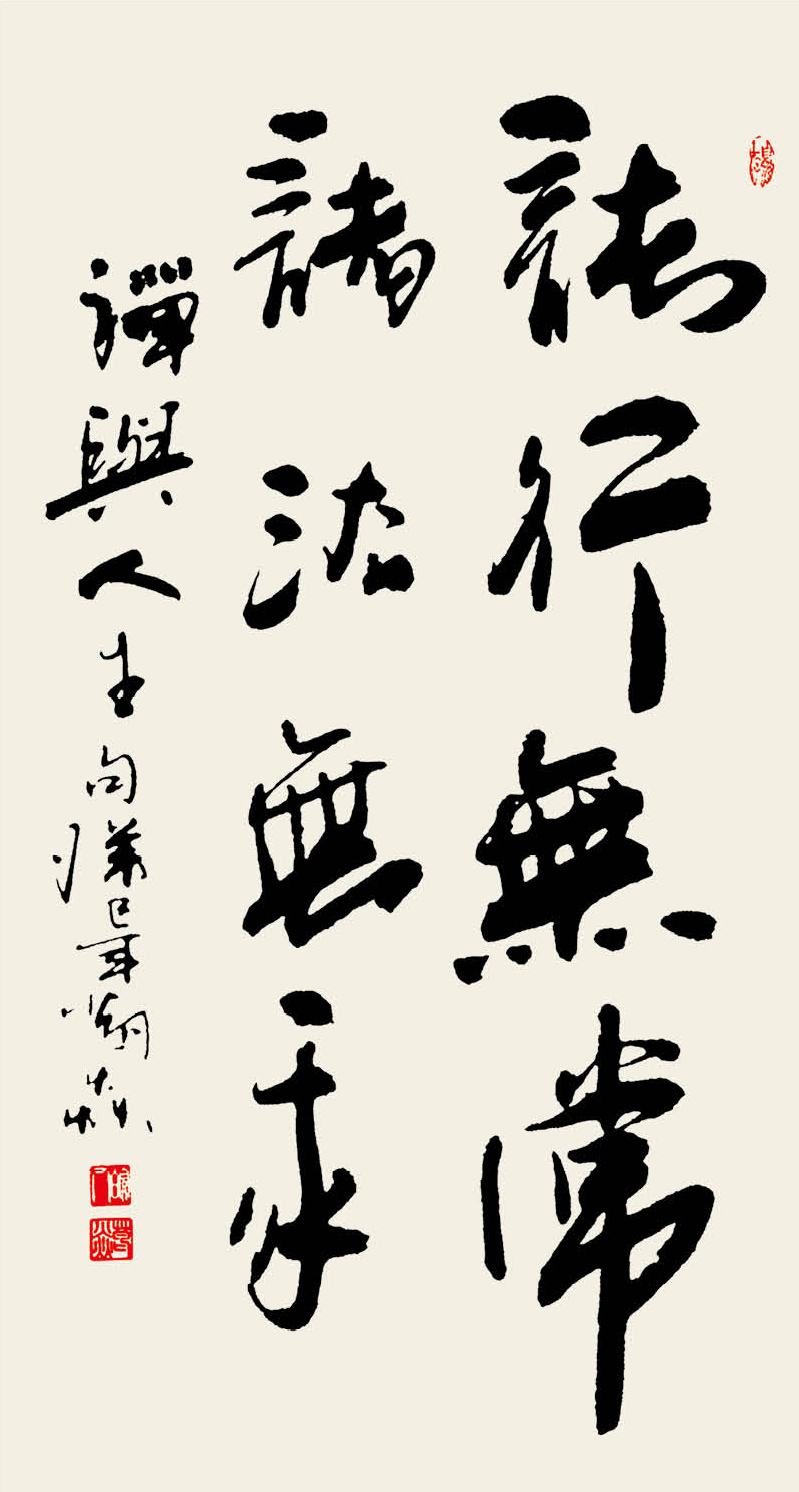 諸行無常
諸法無我
禪與人生句癸巳年